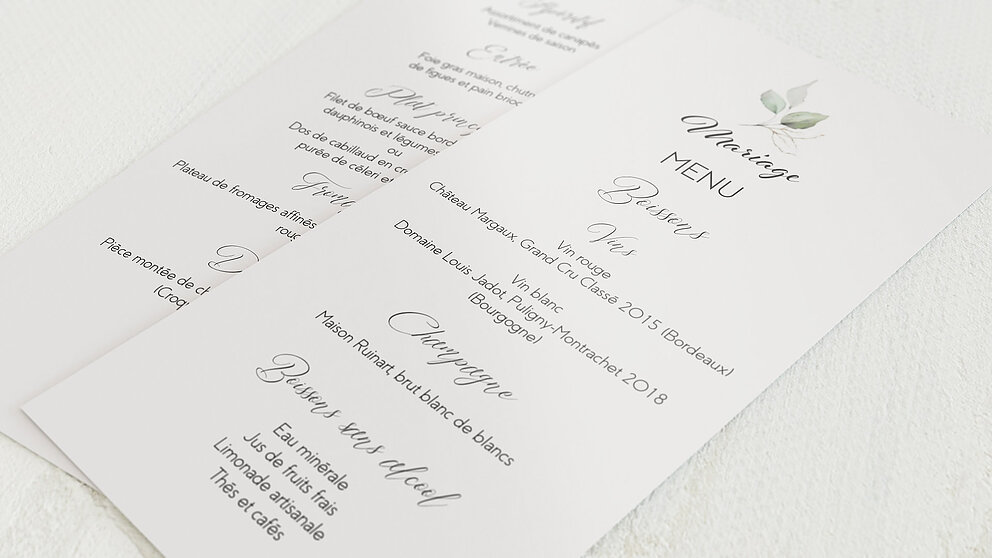 Mariage
MENU
Boissons
Vins
Vin rouge
Château Margaux, Grand Cru Classé 2015 (Bordeaux)
Vin blanc
Domaine Louis Jadot, Puligny-Montrachet 2018
(Bourgogne)
Champagne
Maison Ruinart, brut blanc de blancs
Boissons sans alcool
Eau minérale
Jus de fruits frais
Limonade artisanale
Thés et cafés
Assortiment de canapés
Verrines de saison
Entrée
Foie gras maison, chutn
de figues et pain brioc
Plat princ
Filet de bœuf sauce bord
dauphinois et légumes
ou
Dos de cabillaud en cr
purée de céleri et
From
Plateau de fromages affinés
roug
D
Pièce montée de ch
(Croq